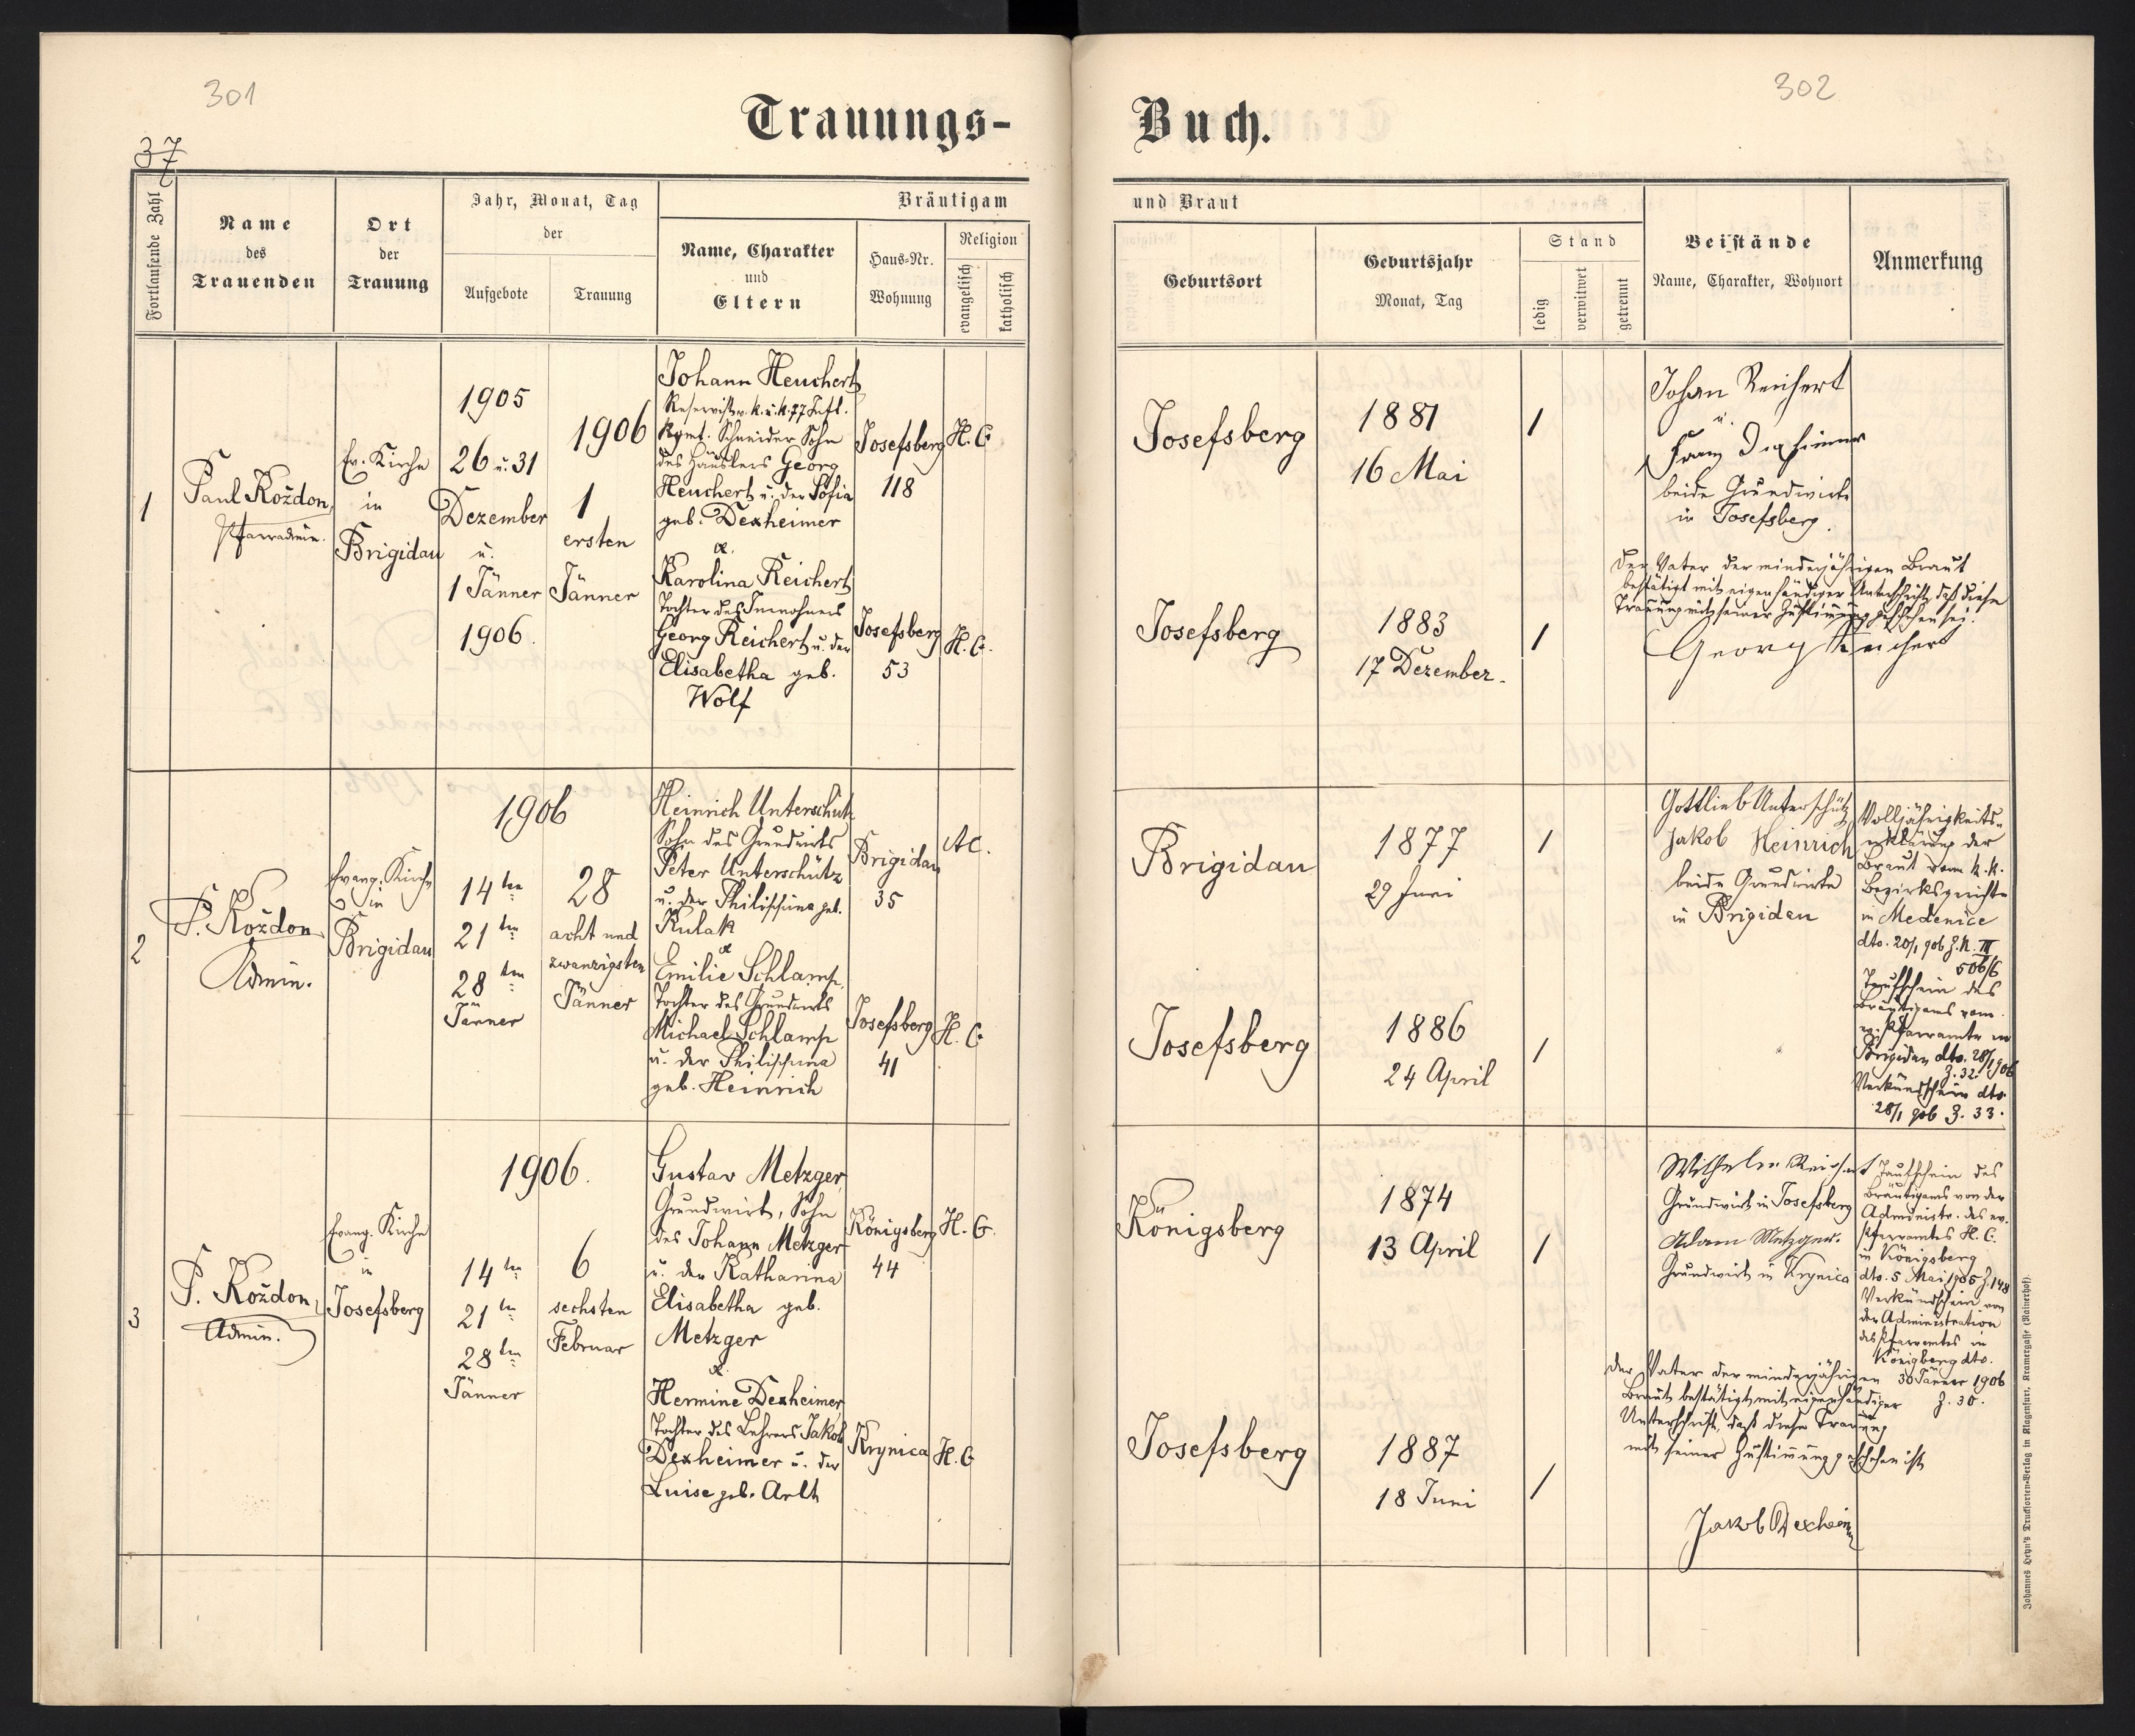 301
302
Trauungs-
Buch.
37
Fortlaufende Zahl
Name
des
Trauenden
Ort
der
Trauung
Jahr, Monat, Tag
der
Aufgebote
Trauung
Bräutigam
Name, Charakter
und
Eltern
Haus-Nr.
Wohnung
Religion
evangelisch
katholisch
und Braut
Geburtsort
Geburtsjahr
Monat, Tag
Stand
ledig
verwitwet
getrennt
Beistände
Name, Charakter, Wohnort
Anmerkung
1
Paul Koždon,
Pfarradmin.
Ev. Kirche
in
Brigidau
1905
26 u. 31
Dezember
u.
1 Jänner
1906.
1906
1
ersten
Jänner
Johann Heuchert,
Reservist v. k. u. k. 77 Inft.
Rgmt. Schneider Sohn
des Häuslers Georg
Heuchert u. der Sofia
geb. Dexheimer
&
Karolina Reichert
Tochter des Inwohners
Georg Reichert u. der
Elisabetha geb.
Wolf
Josefsberg
118
H. C.
Josefsberg
53
H. C.
Josefsberg
1881
16 Mai
/
Josefsberg
1883
17 Dezember.
/
Johan Reichert
u.
Franz
beide Grundwirte
in Josefsberg.
Der Vater der minderjährigen Braut
bestätigt mit eigenhändiger Unterschrift, daß diese
Trauung mit seiner Zustimmung geschehen sei.
Georg Reichert
2
P. Koždon
Admin.
Evang. Kirche
in
Brigidau
1906
14 ten
21 ten
28 ten
Jänner
28
acht und
zwanzigsten
Jänner
Heinrich Unterschütz
Sohn des Grundwirts
Peter Unterschütz
u. der Philippina geb.
Kulak
&
Emilie Schlamp,
Tochter des Grundwirts
Michael Schlamp
u. der Philippina
geb. Heinrich
Brigidau
35
A C.
Josefsberg
41
H. C.
Brigidau
1877
29 Juni
/
Josefsberg
1886
24 April
/
Gottlieb Unterschütz
Jakob Heinrich
beide Grundwirte
in Brigidau
Volljährigkeits-
erklärung der
Braut vom k. k.
Bezirksgerichte
in Medenice
dto. 20/1 906 Z. N. III
506/6
Taufschein des
Bräutigams vom
ev. Pfarramte in
Brigidau dto. 28/1 906
Z. 32.
Verkündschein dto.
28/1 906 Z. 33.
3
P. Koždon,
Admin.
Evang. Kirche
in
Josefsberg
1906.
14 ten
21 ten
28 ten
Jänner
6
sechsten
Februar
Gustav Metzger,
Grundwirt, Sohn
des Johann Metzger
u. der Katharina
Elisabetha geb.
Metzger
&
Hermine Dexheimer,
Tochter des Lehrers Jakob
Dexheimer u. der
Luise geb. Arlt
Königsberg
44
H. C.
Krynica
H. C
Königsberg
1874
13 April
/
Josefsberg
1887
18 Juni
/
Wilhelm Reichert
Grundwirt in Josefsberg
Adam Metzger.
Grundwirt in Krynica
Taufschein des
Bräutigams von der
Administr. des ev.
Pfarramtes H. C.
in Königsberg
dto. 5 Mai 1905 Z. 148
Verkündschein von
der Administration
des Pfarramtes in
Königberg dto.
30 Jänner 1906
Z. 30.
Der Vater der minderjährigen
Braut bestätigt mit eigenhändiger
Unterschrift, daß diese Trauung
mit seiner Zustimmung geschehen ist
Jakob Dexheim
Johannes Heyn's Drucksorten-Verlag in Klagenfurt, Kramergasse (Mainerhof).